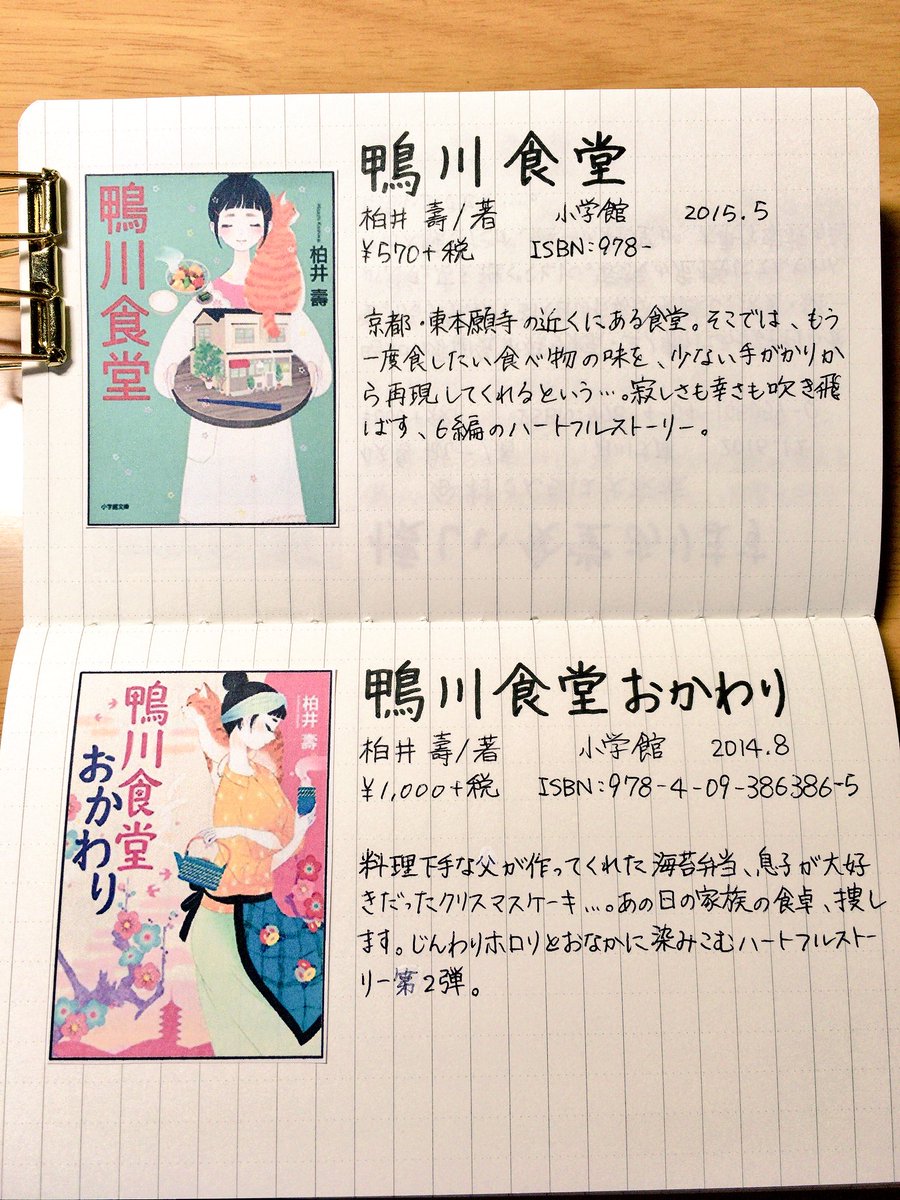 鴨川食堂
柏井 壽
小学館文庫
鴨川食堂
柏井 壽/著 小学館 2015.5
¥570+税 ISBN:978-
京都・東本願寺の近くにある食堂。そこでは、もう
一度食したい食べ物の味を、少ない手がかりか
ら再現してくれるという…。寂しさも辛さも吹き飛
ばす、6編のハートフルストーリー。
鴨川食堂
おかわり
柏井 壽
鴨川食堂おかわり
柏井 壽/著 小学館 2014.8
¥1,000+税 ISBN:978-4-09-386386-5
料理下手な父が作ってくれた海苔弁当、息子が大好
きだったクリスマスケーキ…。あの日の家族の食卓、捜し
ます。じんわりホロリとおなかに染みこむハートフルストー
リー第2弾。